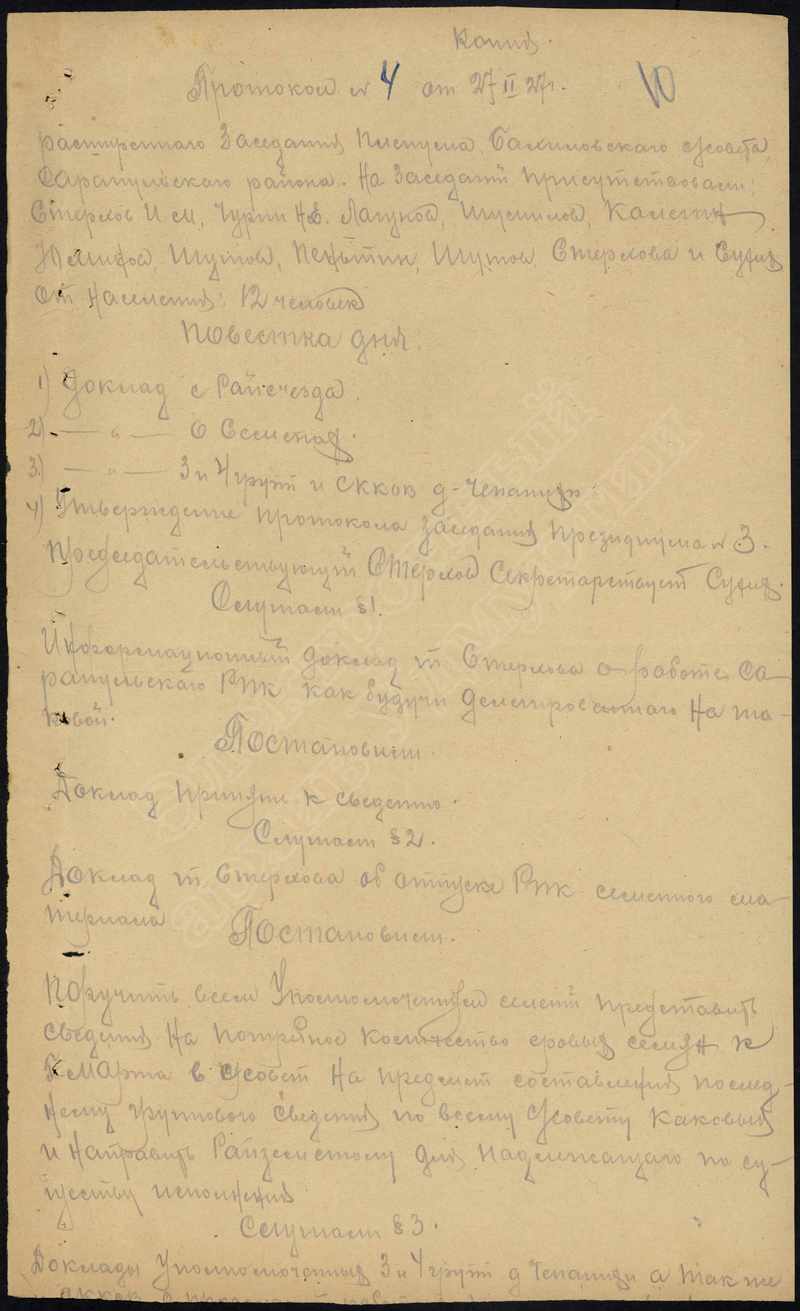 Копия.
Протокол № 4 от 27 II 27 г. 10
расширенного заседания Пленума сельсовета,
Сарапульского района. На заседании присутствовали:
Стерхов И м, Чурин Лагунов, Шумилов, Калетин
Шутов, Шутов, Стерхова и
От населения: 12 человек
Повестка дня.
1) Доклад с Райсъезда.
2) — " — О Семенах.
3) — " — 3 и 4 групп и СККОВ д-Чепанихи:
4) Утверждение протокола заседания президиума № 3.
Председательствующий Стерхов Секретарствует
Слушали § 1.
Информационный доклад т Стерхова о работе Са-
рапульского РИК как будучи делегированного на та-
ковой.
Постановили.
Доклад принять к сведению.
Слушали § 2.
Доклад т Стерхова об отпуске РИК семенного ма-
териала
Постановили.
Поручить всем Уполномоченным представить
сведения на потребное количество яровых семян к
Марта в с/совет на предмет составления послед-
нему группового сведения по всему с/совету каковые
и направить для надлежащего по су-
ществу исполнения
Слушали § 3.
Доклады Уполномоченных 3 и 4 групп д Чепанихи а так же